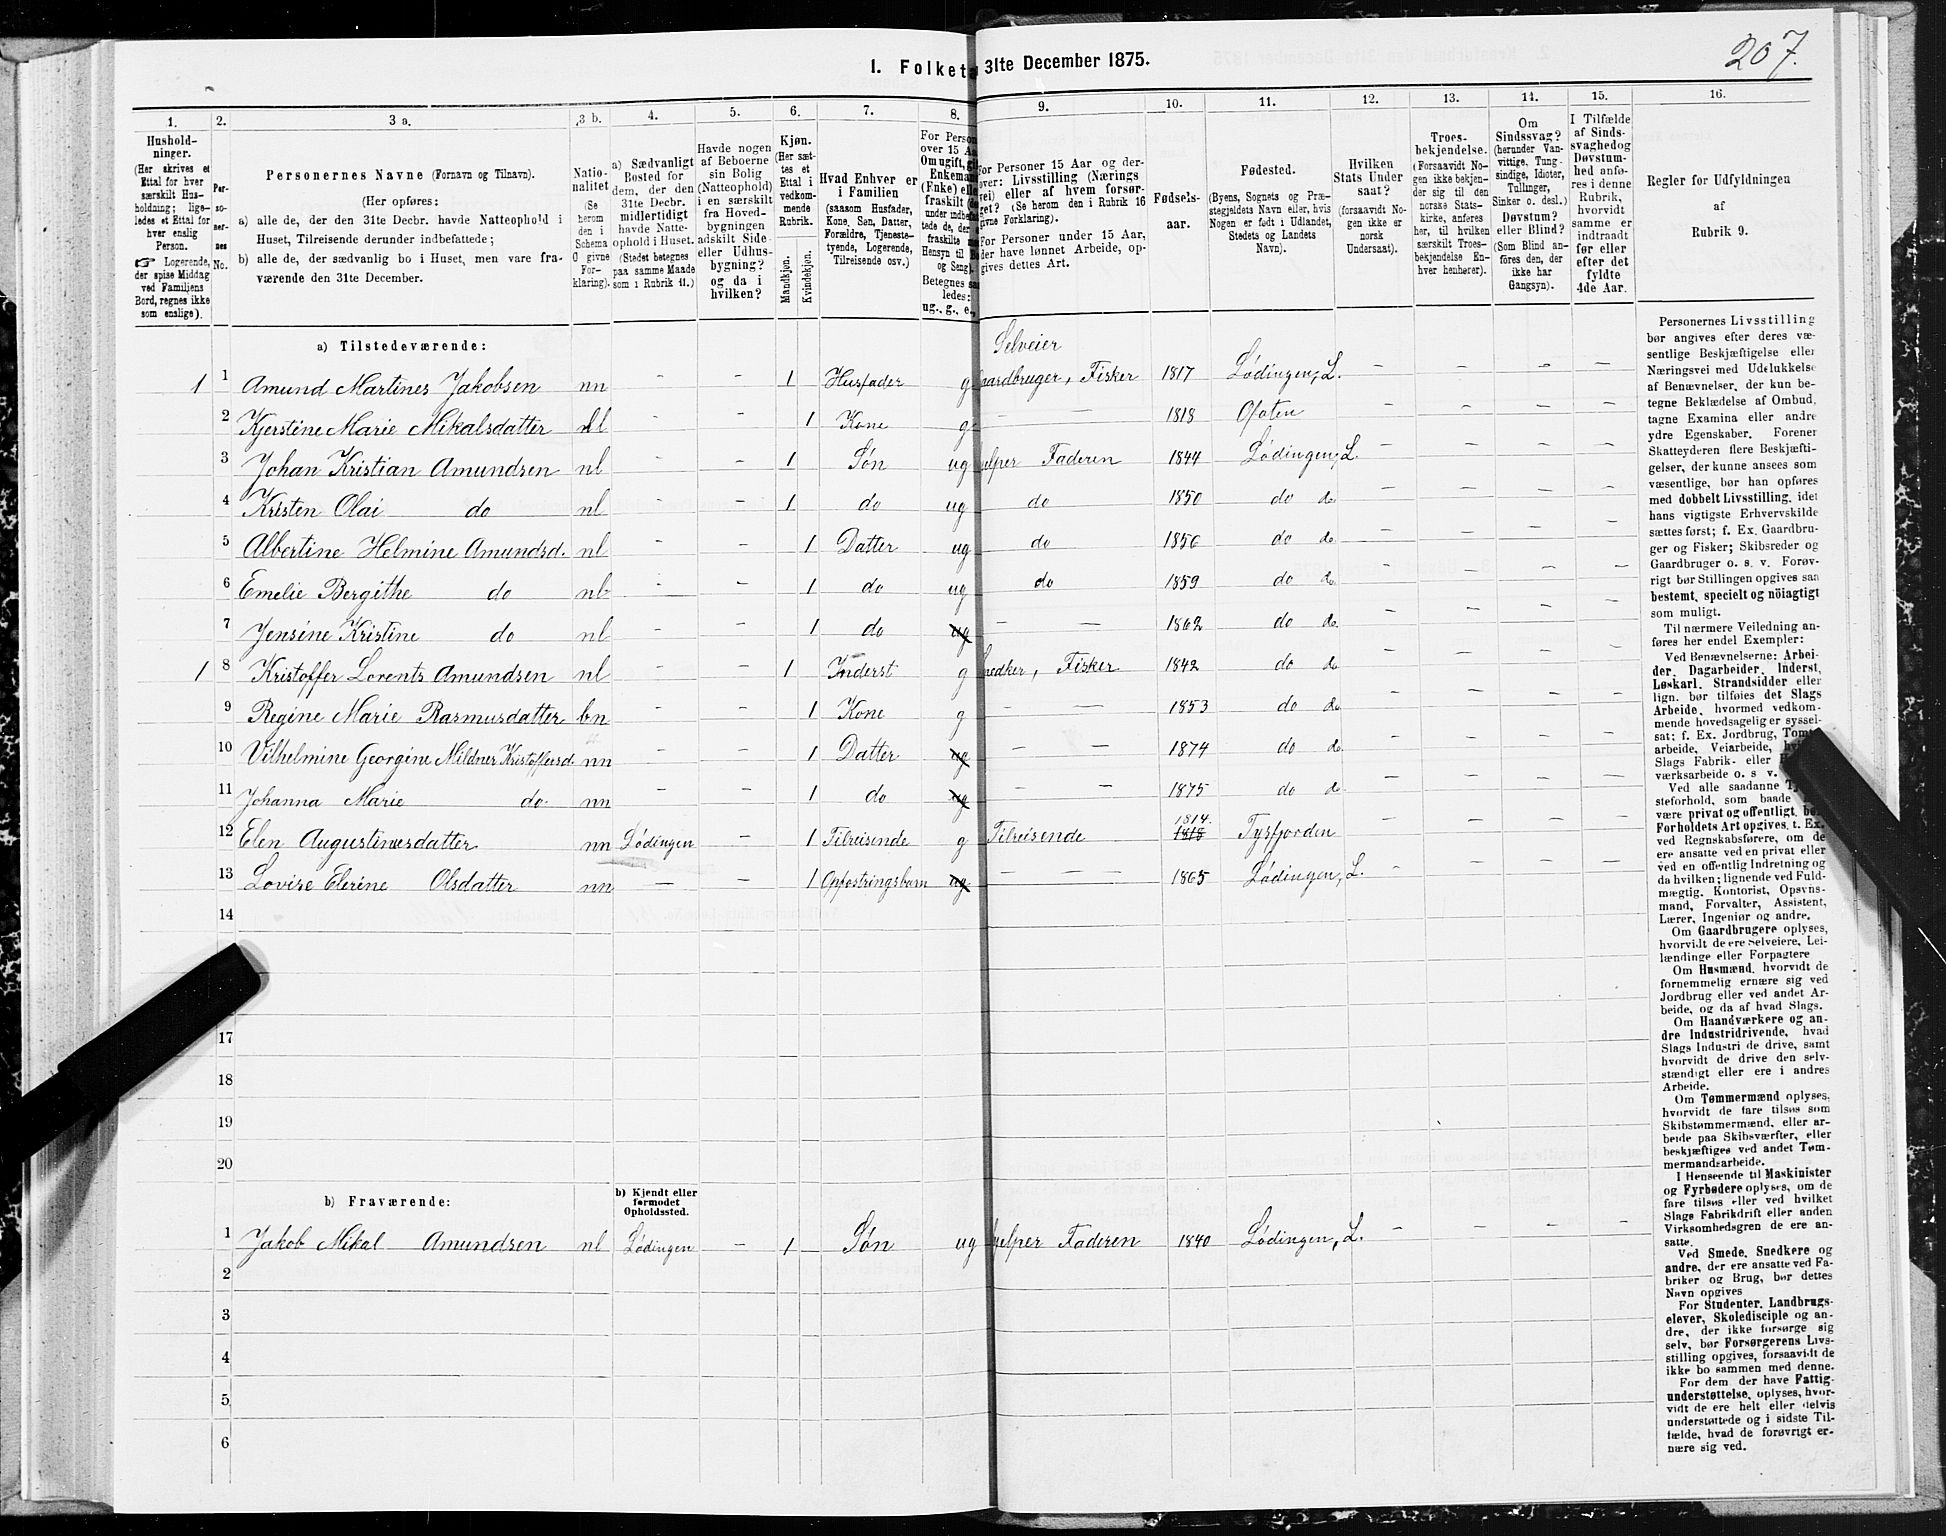 207.
I. Folket 31te December 1875.
1. 2. 3 a. 3 b. 4. 5. 6. 7. 8. 9. 10. 11. 12. 13. 14. 15. 16.
Hushold-
ninger.
(Her skrives et
Ettal for hver
særskilt Hus-
holdning; lige-
ledes et Ettal for
hver enslig
Person.
☞ Logerende,
der spise Middag
ved Familiens
Bord, regnes ikke
som enslige).
Per-
so-
ner-
nes
No.
Personernes Navne (Fornavn og Tilnavn).
(Her opføres:
a) alle de, der den 31te Decbr. havde Natteophold i
Huset, Tilreisende derunder indbefattede;
b) alle de, der sædvanlig bo i Huset, men vare fra-
værende den 31te December.
Natio-
nalitet
(Se
herom
den i
Schema
0 givne
For-
klaring).
a) Sædvanligt
Bosted for
dem, der den
31te Decbr.
midlertidigt
havde Natte-
ophold i Huset.
(Stedet betegnes
paa samme Maade
som i Rubrik 11.)
Havde nogen
af Beboerne
sin Bolig
(Natteophold)
i en særskilt
fra Hoved-
bygningen
adskilt Side-
eller Udhus-
bygning?
og da i
hvilken?
Kjøn.
(Her sæt-
tes et
Ettal i
vedkom-
mende
Rubrik.
Mandkjøn.
Kvindekjøn.
Hvad Enhver er
i Familien
(saasom Husfader,
Kone, Søn, Datter,
Forældre, Tjeneste-
tyende, Logerende,
Tilreisende osv.)
For Person
over 15 Aa
Om ugift, gif
Enkeman
(Enke) elle
fraskilt (d
under indbefat
tede de, der e
fraskilte m
Hensyn til B
og Seng).
Betegnes sa
ledes:
ug., g., e.,
For Personer 15 Aar og der-
over: Livsstilling (Nærings
vei) eller af hvem forsør-
get? (Se herom den i Rubrik 16
givne Forklaring).
For Personer under 15 Aar,
der have lønnet Arbeide, op-
gives dettes Art.
Fødsels-
aar.
Fødested.
(Byens, Sognets og Præ-
stegjeldets Navn eller, hvis
Nogen er født i Udlandet,
Stedets og Landets
Navn).
Hvilken
Stats Under
saat?
(forsaavidt No-
gen ikke er
norsk
Undersaat).
Troes-
bekjendelse.
(Forsaavidt No-
gen ikke bekjen-
der sig til den
norske Stats-
kirke, anføres
her, til hvilken
særskilt Troes-
bekjendelse En-
hver henhører).
Om
Sindssvag?
(herunder Van-
vittige, Tung-
sindige, Idioter,
Tullinger,
Sinker o. desl.)
Døvstum?
eller Blind?
(Som Blind an-
føres den, der
ikke har
Gangsyn).
I Tilfælde
af Sinds-
svaghed og
Døvstum-
hed anfø-
res i denne
Rubrik,
hvorvidt
samme er
indtraadt
før eller
efter det
fyldte
4de Aar.
Regler for Udfyldningen
af
Rubrik 9.
a) Tilstedeværende:
Selveier
1 1 Amund Martines Jakobsen nn - - 1 Husfader g aardbruger, Fisker 1817 Lødingen, L. - - - -
2 Kjerstine Marie Mikalsdatter l - - 1 Kone g - - 1818 Ofoten - - - -
3 Johan Kristian Amundsen nl - - 1 Søn ug jelper Faderen 1844 Lødingen, L. - - - -
4 Kristen Olai do nl - - 1 do ug do 1850 do do - - - -
5 Albertine Helmine Amundsd. nl - - 1 Datter ug do 1856 do do - - - -
6 Emelie Bergithe do nl - - 1 do ug do 1859 do do - - - -
7 Jensine Kristine do nl - - 1 do ug - - 1862 do do - - - -
1 8 Kristoffer Lorents Amundsen nl - - 1 Inderst g Snedker, Fisker 1842 do do - - - -
9 Regine Marie Rasmusdatter bn - - 1 Kone g - - 1853 do do - - - -
10 Vilhelmine Georgine Mildner Kristoffersd. nn - - 1 Datter ug - - 1874 do do - - - -
11 Johanna Marie do. nn - - 1 do ug - - 1875 do do - - - -
12 Elen Augustinusdatter nn Lødingen - 1 Tilreisende g Tilreisende 1814. 1818 Tysfjorden - - - -
13 Lovise Elerine Olsdatter nn - - 1 Opfostringsbarn ug - - 1865 Lødingen, L. - - - -
14
17
18
19
20
b) Fraværende:
b) Kjendt eller
formodet
Opholdssted.
1 Jakob Mikal Amundsen nl Lødingen - 1 Søn ug hjelper Faderen 1840 Lødingen, L. - - - -
2
3
4
5
6
Personernes Livsstilling
bør angives efter deres væ-
sentlige Beskjæftigelse eller
Næringsvei med Udelukkelse
af Benævnelser, der kun be-
tegne Beklædelse af Ombud,
tagne Examina eller andre
ydre Egenskaber. Forener
Skatteyderen flere Beskjæfti-
gelser, der kunne ansees som
væsentlige, bør han opføres
med dobbelt Livsstilling, idet
hans vigtigste Erhvervskilde
sættes først; f. Ex. Gaardbru-
ger og Fisker; Skibsreder og
Gaardbruger o. s. v. Forøv-
rigt bør Stillingen opgives saa
bestemt, specielt og nöiagtigt
som muligt.
Til nærmere Veiledning an-
føres her endel Exempler:
Ved Benævnelserne: Arbei-
der, Dagarbeider, Inderst,
Løskarl, Strandsidder eller
lign. bør tilføies det Slags
Arbeide, hvormed vedkom-
mende hovedsagelig er syssel-
sat; f. Ex. Jordbrug, Tomt-
arbeide, Veiarbeide,
Slags Fabrik- eller
værksarbeide o. s. v.
Ved alle saadanne
steforhold, som baade
være privat og offentligt, bør
Forholdets Art opgives, t. Ex.
ved Regnskabsførere, om de
ere ansatte ved en privat eller
ved en offentlig Indretning og
da hvilken; lignende ved Fuld-
mægtig, Kontorist, Opsyns-
mand, Forvalter, Assistent,
Lærer, Ingeniør og andre.
Om Gaardbrugere oplyses,
hvorvidt de ere Selveiere, Lei-
lændinge eller Forpagtere
Om Husmænd, hvorvidt de
fornemmelig ernære sig ved
Jordbrug eller ved andet Ar-
beide, og da af hvad Slags.
Om Haandværkere og an-
dre Industridrivende, hvad
Slags Industri de drive, samt
hvorvidt de drive den selv-
stændigt eller ere i andres
Arbeide.
Om Tømmermænd oplyses,
hvorvidt de fare tilsøs som
Skibstømmermænd, eller ar-
beide paa Skibsværfter, eller
beskjæftiges ved andet Tøm-
mermandsarbeide.
I Henseende til Maskinister
og Fyrbødere oplyses, om de
fare tilsøs eller ved hvilket
Slags Fabrikdrift eller anden
Virksomhedsgren de ere an-
satte.
Ved Smede, Snedkere og
andre, der ere ansatte ved Fa-
briker og Brug, bør dettes
Navn opgives
For Studenter, Landbrugs-
elever, Skoledisciple og an-
dre, der ikke forsørge sig
selv, bør Forsørgerens Livs-
stilling opgives, forsaavidt de
ikke bo sammen med denne.
For dem, der have Fattig-
understøttelse, oplyses, hvor-
vidt de ere helt eller delvis
understøttede og i sidste Til-
fælde, hvad de forøvrigt er-
nære sig ved.